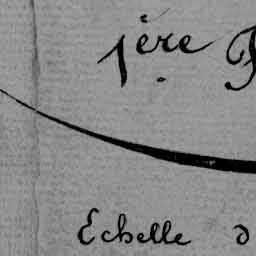 1ère F
Echelle d